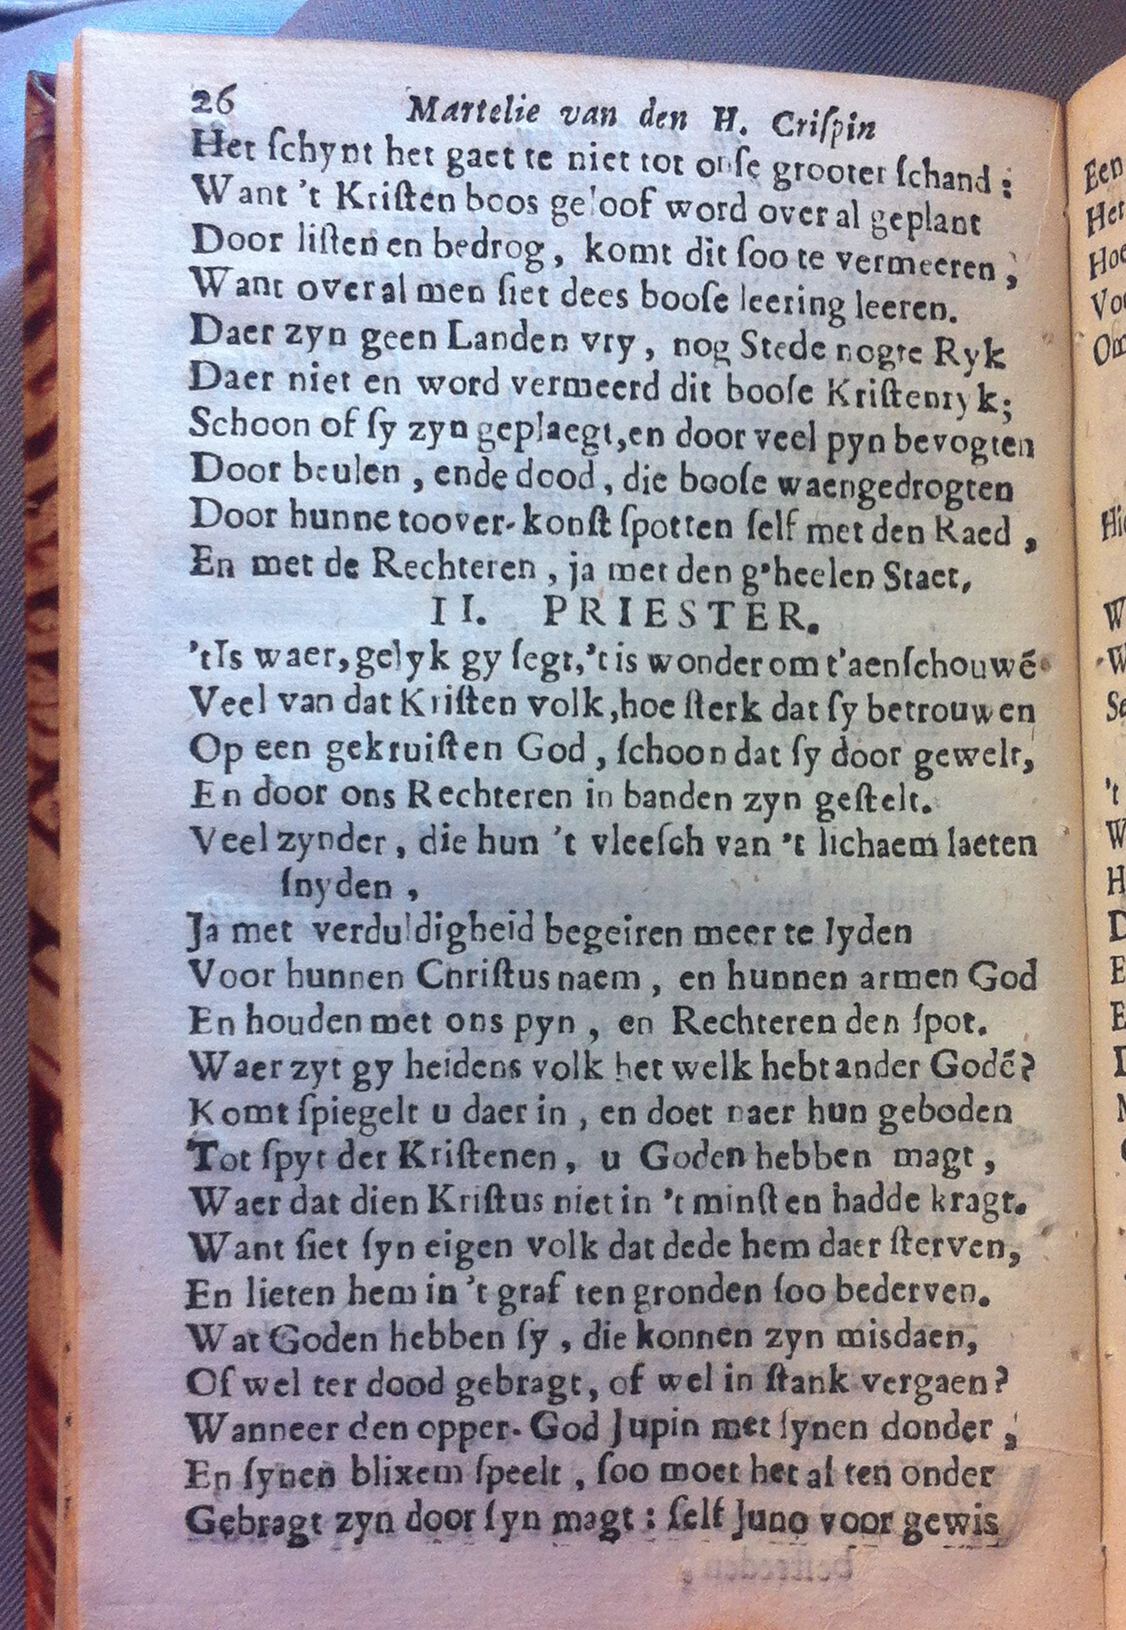 26 Martelie van den H. Criſpin
Het ſchynt het gaet te niet tot onſe grooter ſchand :
Want 't Kriſten boos geloof word over al geplant
Door liſten en bedrog, komt dit ſoo te vermeeren ,
Want over al men ſiet dees booſe leering leeren.
Daer zyn geen Landen vry , nog Stede nogte Ryk
Daer niet en word vermeerd dit booſe Kriſtenryk;
Schoon of ſy zyn geplaegt,en door veel pyn bevogten
Door beulen , ende dood , die booſe waengedrogten
Door hunne toover-konſt ſpotten ſelf met den Raed ,
En met de Rechteren , ja met den g'heelen Staet.
II. PRIESTER.
'tIs waer,gelyk gy ſegt,'t is wonder om t'aenſchouwē
Veel van dat Kriſten volk,hoe ſterk dat ſy betrouwen
Op een gekruiſten God , ſchoon dat ſy door gewelt,
En door ons Rechteren in banden zyn geſtelt.
Veel zynder , die hun 't vleeſch van 't lichaem laeten
ſnyden ,
Ja met verduldigheid begeiren meer te lyden
Voor hunnen Chriſtus naem , en hunnen armen God
En houden met ons pyn , en Rechteren den ſpot.
Waer zyt gy heidens volk het welk hebt ander Godē?
Komt ſpiegelt u daer in , en doet naer hun geboden
Tot ſpyt der Kriſtenen , u Goden hebben magt ,
Waer dat dien Kriſtus niet in 't minſt en hadde kragt.
Want ſiet ſyn eigen volk dat dede hem daer ſterven,
En lieten hem in 't graf ten gronden ſoo bederven.
Wat Goden hebben ſy , die konnen zyn misdaen,
Of wel ter dood gebragt, of wel in ſtank vergaen?
Wanneer den opper-God Jupin met ſynen donder ,
En ſynen blixem ſpeelt , ſoo moet het al ten onder
Gebragt zyn door ſyn magt : ſelf Juno voor gewis